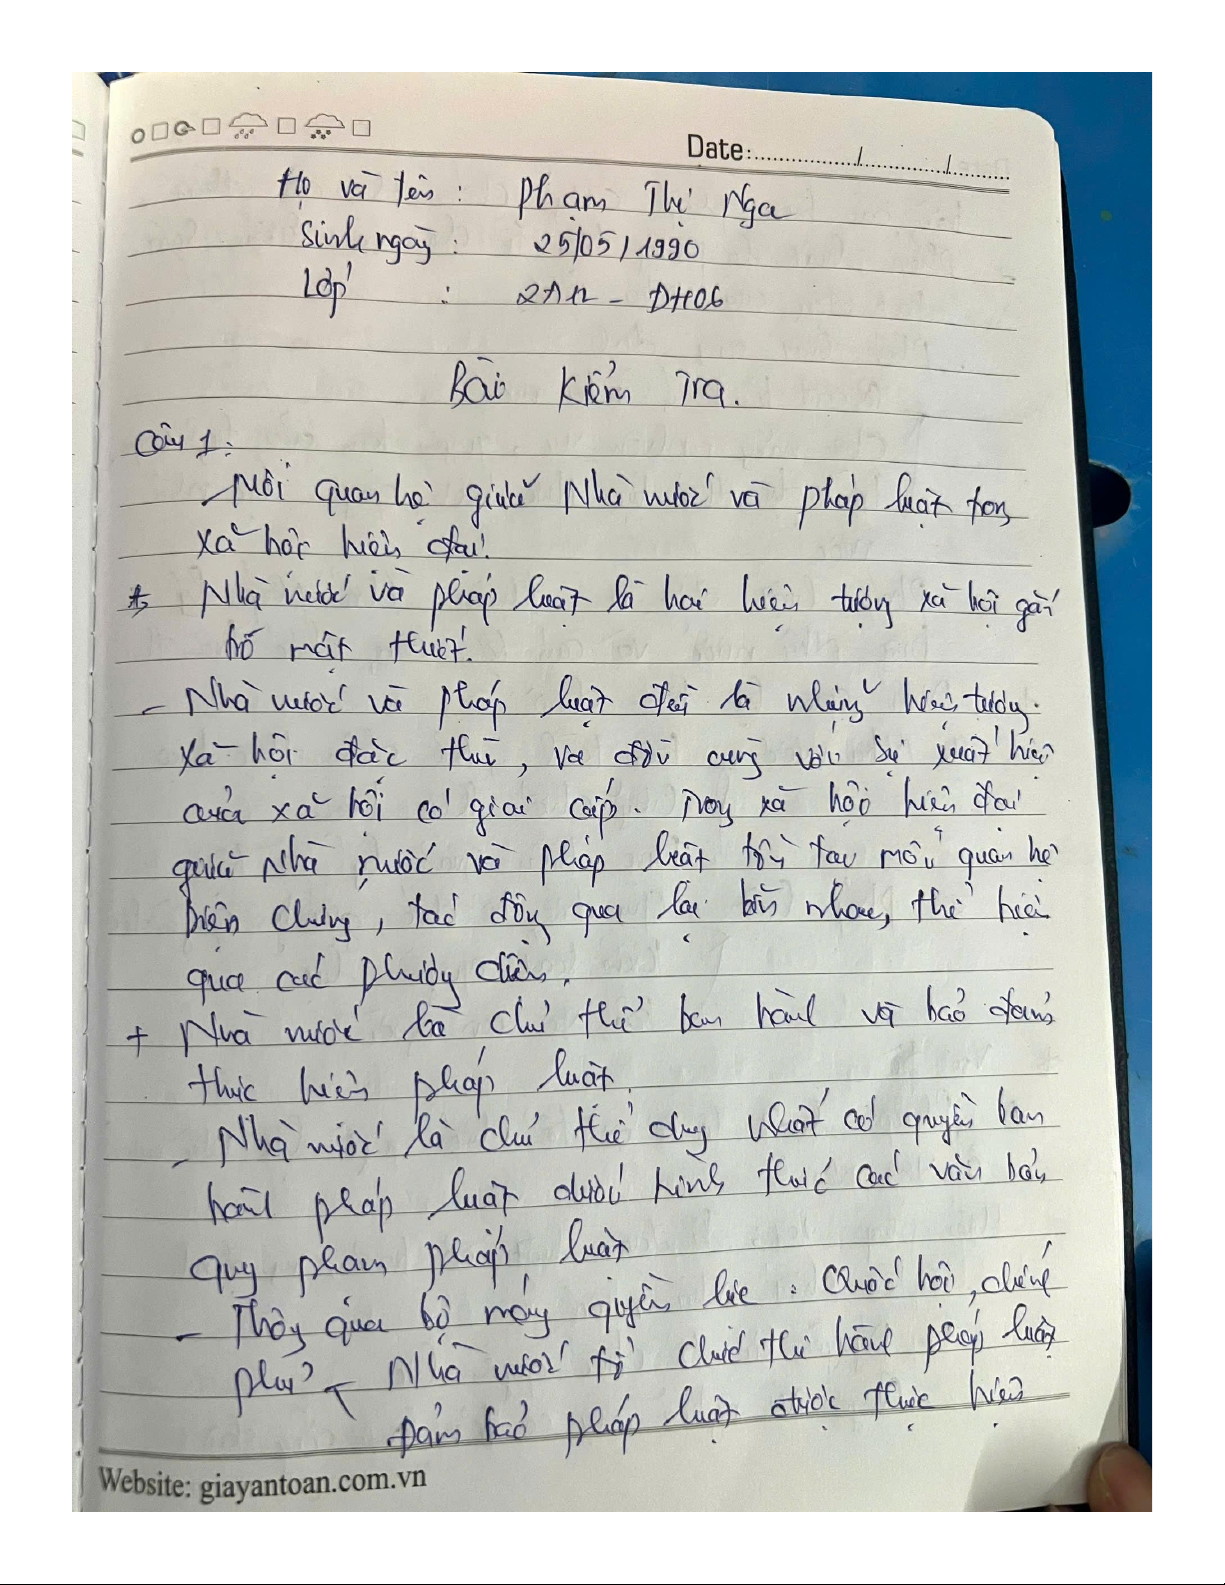 Date:................/................/............
Họ và tên : Phạm Thị Nga
Sinh ngày : 25/05/1990
Lớp : - ĐH06
Bài Kiểm Tra.
Câu 1:
- Mối quan hệ giữa Nhà nước và pháp luật trong
xã hội hiện đại.
* Nhà nước và pháp luật là hai hiện tượng xã hội gắn
bó mật thiết.
- Nhà nước và pháp luật đều là những hiện tượng
xã hội đặc thù, ra đời cùng với sự xuất hiện
của xã hội có giai cấp. Trong xã hội hiện đại
giữa Nhà nước và pháp luật tồn tại mối quan hệ
biện chứng, tác động qua lại lẫn nhau, thể hiện
qua các phương diện.
+ Nhà nước là chủ thể ban hành và bảo đảm
thực hiện pháp luật.
- Nhà nước là chủ thể duy nhất có quyền ban
hành pháp luật dưới hình thức các văn bản
quy phạm pháp luật
- Thông qua bộ máy quyền lực : Quốc hội, chính
phủ - Nhà nước tổ chức thi hành pháp luật
Đảm bảo pháp luật được thực hiện
Website: giayantoan.com.vn